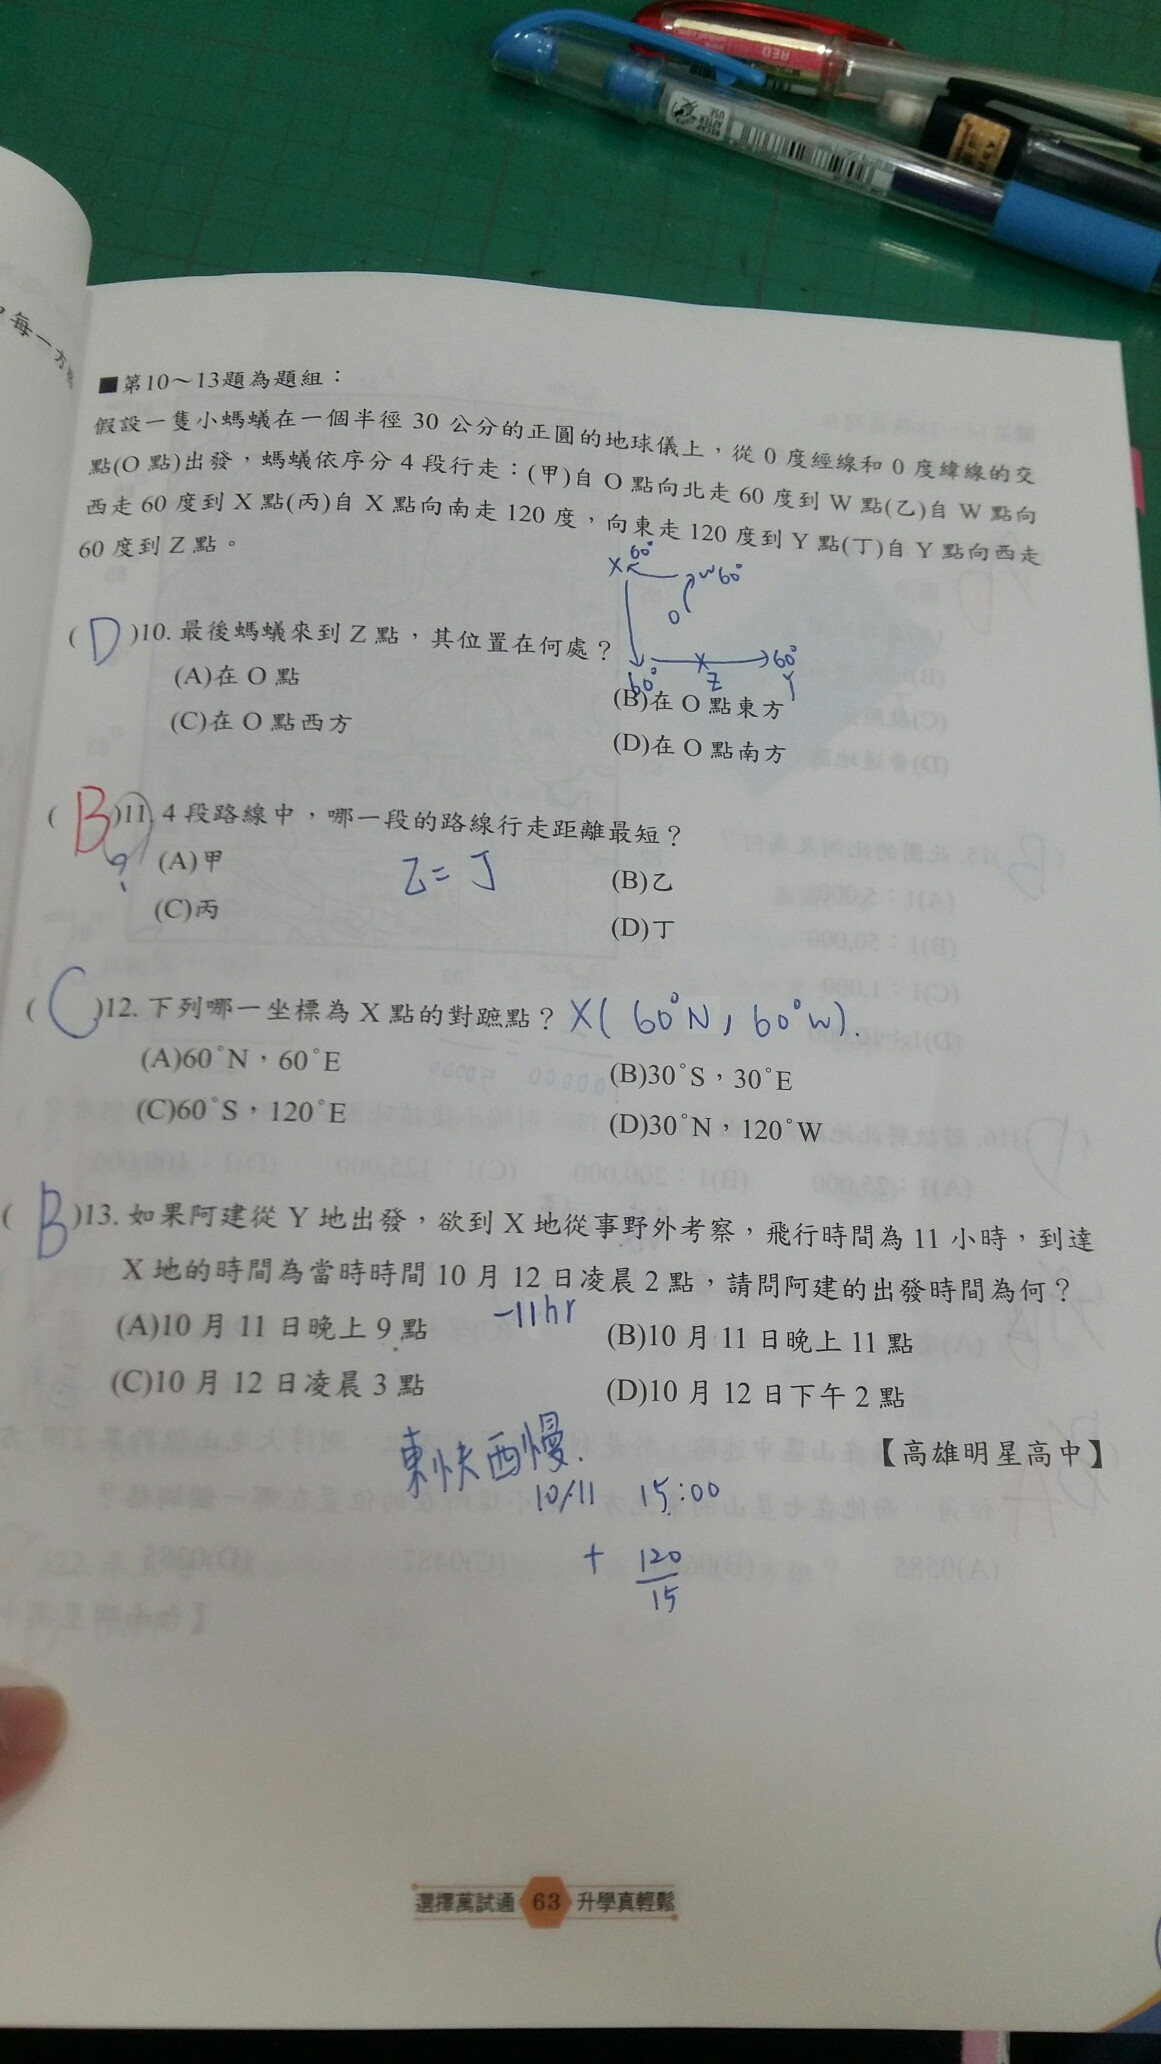 RED
每一方
■第10～13題為題組：
假設一隻小螞蟻在一個半徑 30 公分的正圓的地球儀上，從 0 度經線和 0 度緯線的交
點(O 點)出發，螞蟻依序分 4 段行走：(甲)自 O 點向北走 60 度到 W 點(乙)自 W 點向
西走 60 度到 X 點(丙)自 X 點向南走 120 度，向東走 120 度到 Y 點(丁)自 Y 點向西走
60 度到 Z 點。
X 60° W 60°
O
60° Z 60° Y
( D )10. 最後螞蟻來到 Z 點，其位置在何處？
(A)在 O 點 (B)在 O 點東方
(C)在 O 點西方 (D)在 O 點南方
( B )11. 4 段路線中，哪一段的路線行走距離最短？
? (A)甲 乙=丁 (B)乙
(C)丙 (D)丁
( C )12. 下列哪一坐標為 X 點的對蹠點？ X( 60°N, 60°W).
(A)60°N，60°E (B)30°S，30°E
(C)60°S，120°E (D)30°N，120°W
( B )13. 如果阿建從 Y 地出發，欲到 X 地從事野外考察，飛行時間為 11 小時，到達
X 地的時間為當時時間 10 月 12 日凌晨 2 點，請問阿建的出發時間為何？
-11hr
(A)10 月 11 日晚上 9 點 (B)10 月 11 日晚上 11 點
(C)10 月 12 日凌晨 3 點 (D)10 月 12 日下午 2 點
【高雄明星高中】
東快西慢.
10/11 15:00
+ 120
15
選擇萬試通 63 升學真輕鬆